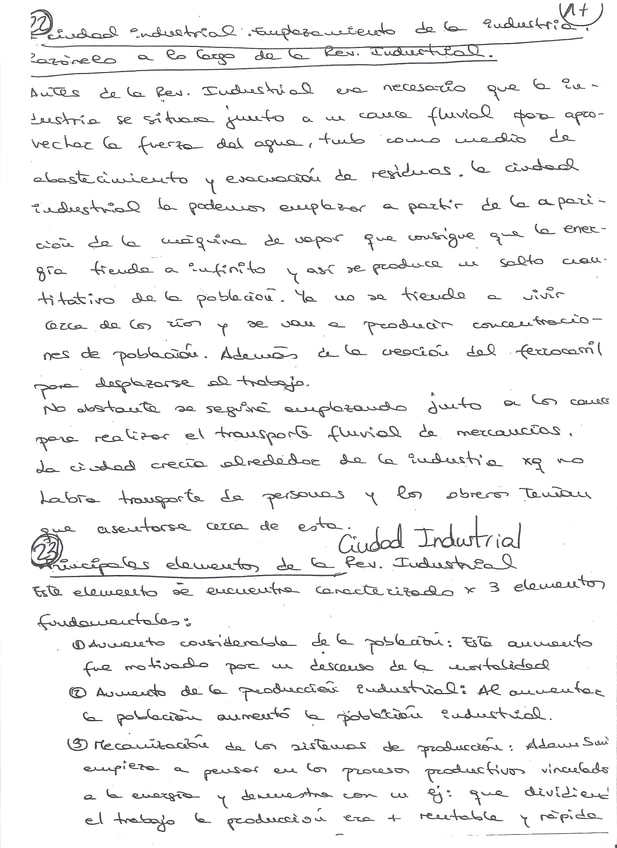 22
17
Ciudad industrial. Emplazamiento de la industria.
Razónelo a lo largo de la Rev. Industrial.
Antes de la Rev. Industrial era necesario que la in-
dustria se situara junto a un cauce fluvial para apro-
vechar la fuerza del agua, tmb como medio de
abastecimiento y evacuación de residuos. la ciudad
industrial la podemos emplazar a partir de la apari-
ción de la máquina de vapor que consigue que la ener-
gía tienda a infinito y así se produce un salto cuan-
titativo de la población. Ya no se tiende a vivir
cerca de los ríos y se van a producir concentracio-
nes de población. Además de la creación del ferrocarril
para desplazarse al trabajo.
No obstante se seguirá emplazando junto a los cauces
para realizar el transporte fluvial de mercancías.
La ciudad crecía alrededor de la industia xq no
había transporte de personas y los obreros tenían
que asentarse cerca de esta.
Ciudad Industrial
23
Principales elementos de la Rev. Industrial
Este elemento se encuentra caracterizado x 3 elementos
fundamentales:
① Aumento considerable de la población: Este aumento
fue motivado por un descenso de la mortalidad
② Aumento de la producción industrial: Al aumentar
la población aumentó la población industrial.
③ Mecanización de los sistemas de producción: Adam Smi
empieza a pensar en los procesos productivos vinculados
a la energía y demuestra con un ej: que dividiend
el trabajo la producción era + rentable y rápida